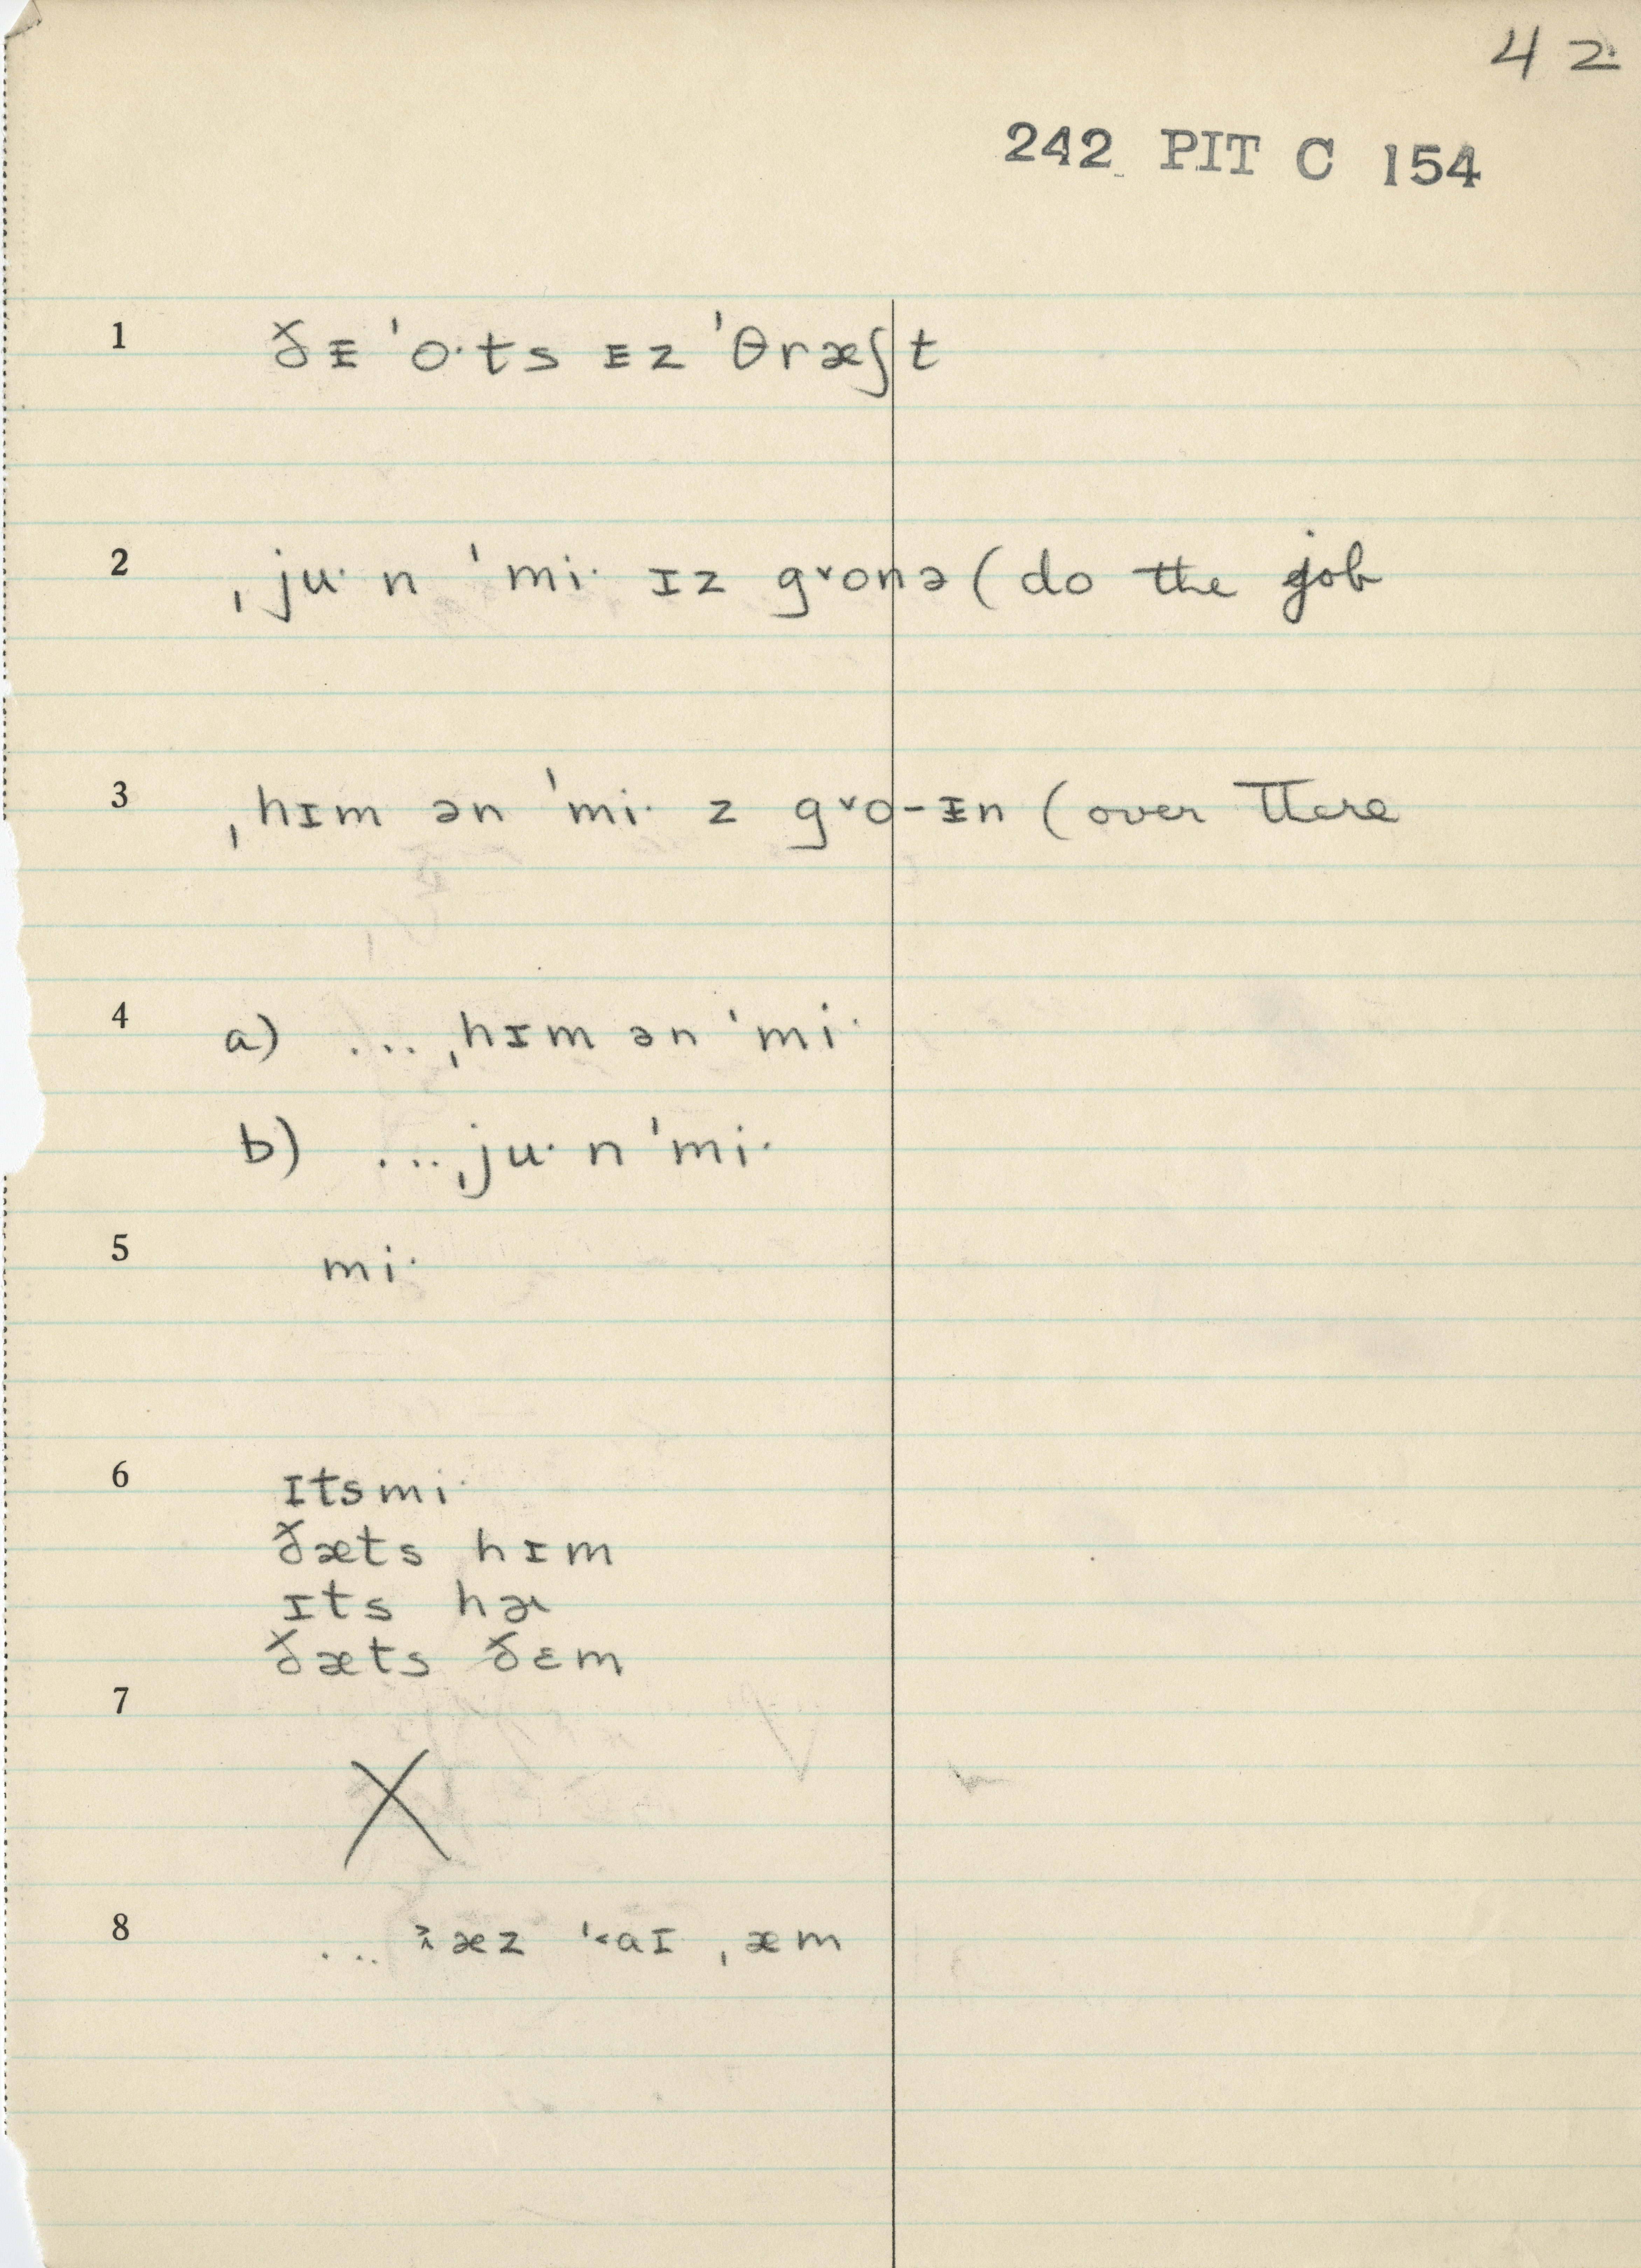 42
242 PIT C 154
1 ðᵻ ˈo·ts ᵻz ˈθræʃt
2 ˌju· n ˈmi· ɪz g˅onə (do the job
3 ˌhɪm ən ˈmi· z g˅o-ᵻn (over there
4 a) ... ˌhɪm ən ˈmi·
b) ... ˌju· n ˈmi·
5 mi·
6 ɪts mi·
ðæts hɪm
ɪts hɚ
ðæts ðɛm
7
X
8 ... æz ˈ˂aɪ ˌæm